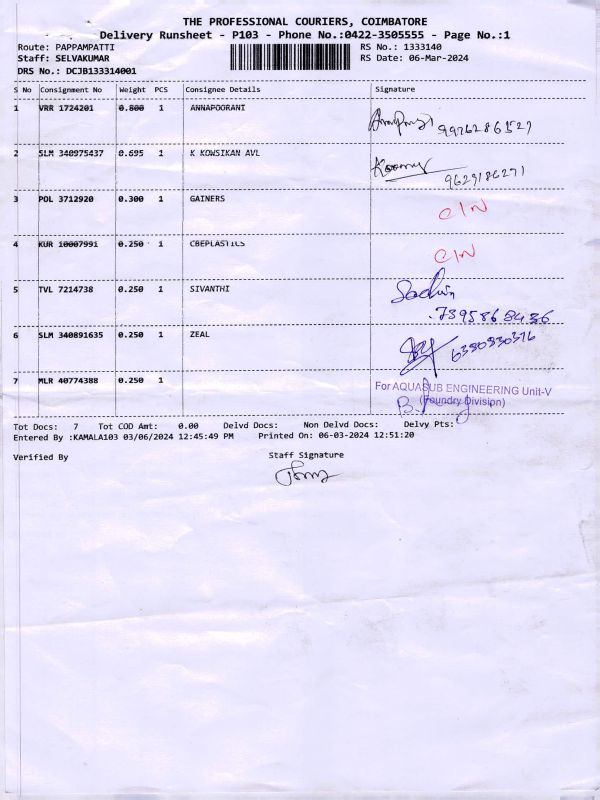 THE PROFESSIONAL COURIERS, COIMBATORE
Delivery Runsheet - P103 - Phone No.:0422-3505555 - Page No.:1
Route: PAPPAMPATTI RS No.: 1333140
Staff: SELVAKUMAR RS Date: 06-Mar-2024
DRS No.: DCJB133314001
S No Consignment No Weight PCS Consignee Details Signature
1 VRR 1724201 0.800 1 ANNAPOORANI
9976286527
2 SLM 340975437 0.695 1 K KOWSIKAN AVL
9629186271
3 POL 3712920 0.300 1 GAINERS C/N
4 KUR 10007991 0.250 1 CBEPLASTICS C/N
5 TVL 7214738 0.250 1 SIVANTHI Sachin
.7395868436
6 SLM 340891635 0.250 1 ZEAL 6380830376
7 MLR 40774388 0.250 1 For AQUASUB ENGINEERING Unit-V
(Foundry Division)
Tot Docs: 7 Tot COD Amt: 0.00 Delvd Docs: Non Delvd Docs: Delvy Pts:
Entered By :KAMALA103 03/06/2024 12:45:49 PM Printed On: 06-03-2024 12:51:20
Verified By Staff Signature